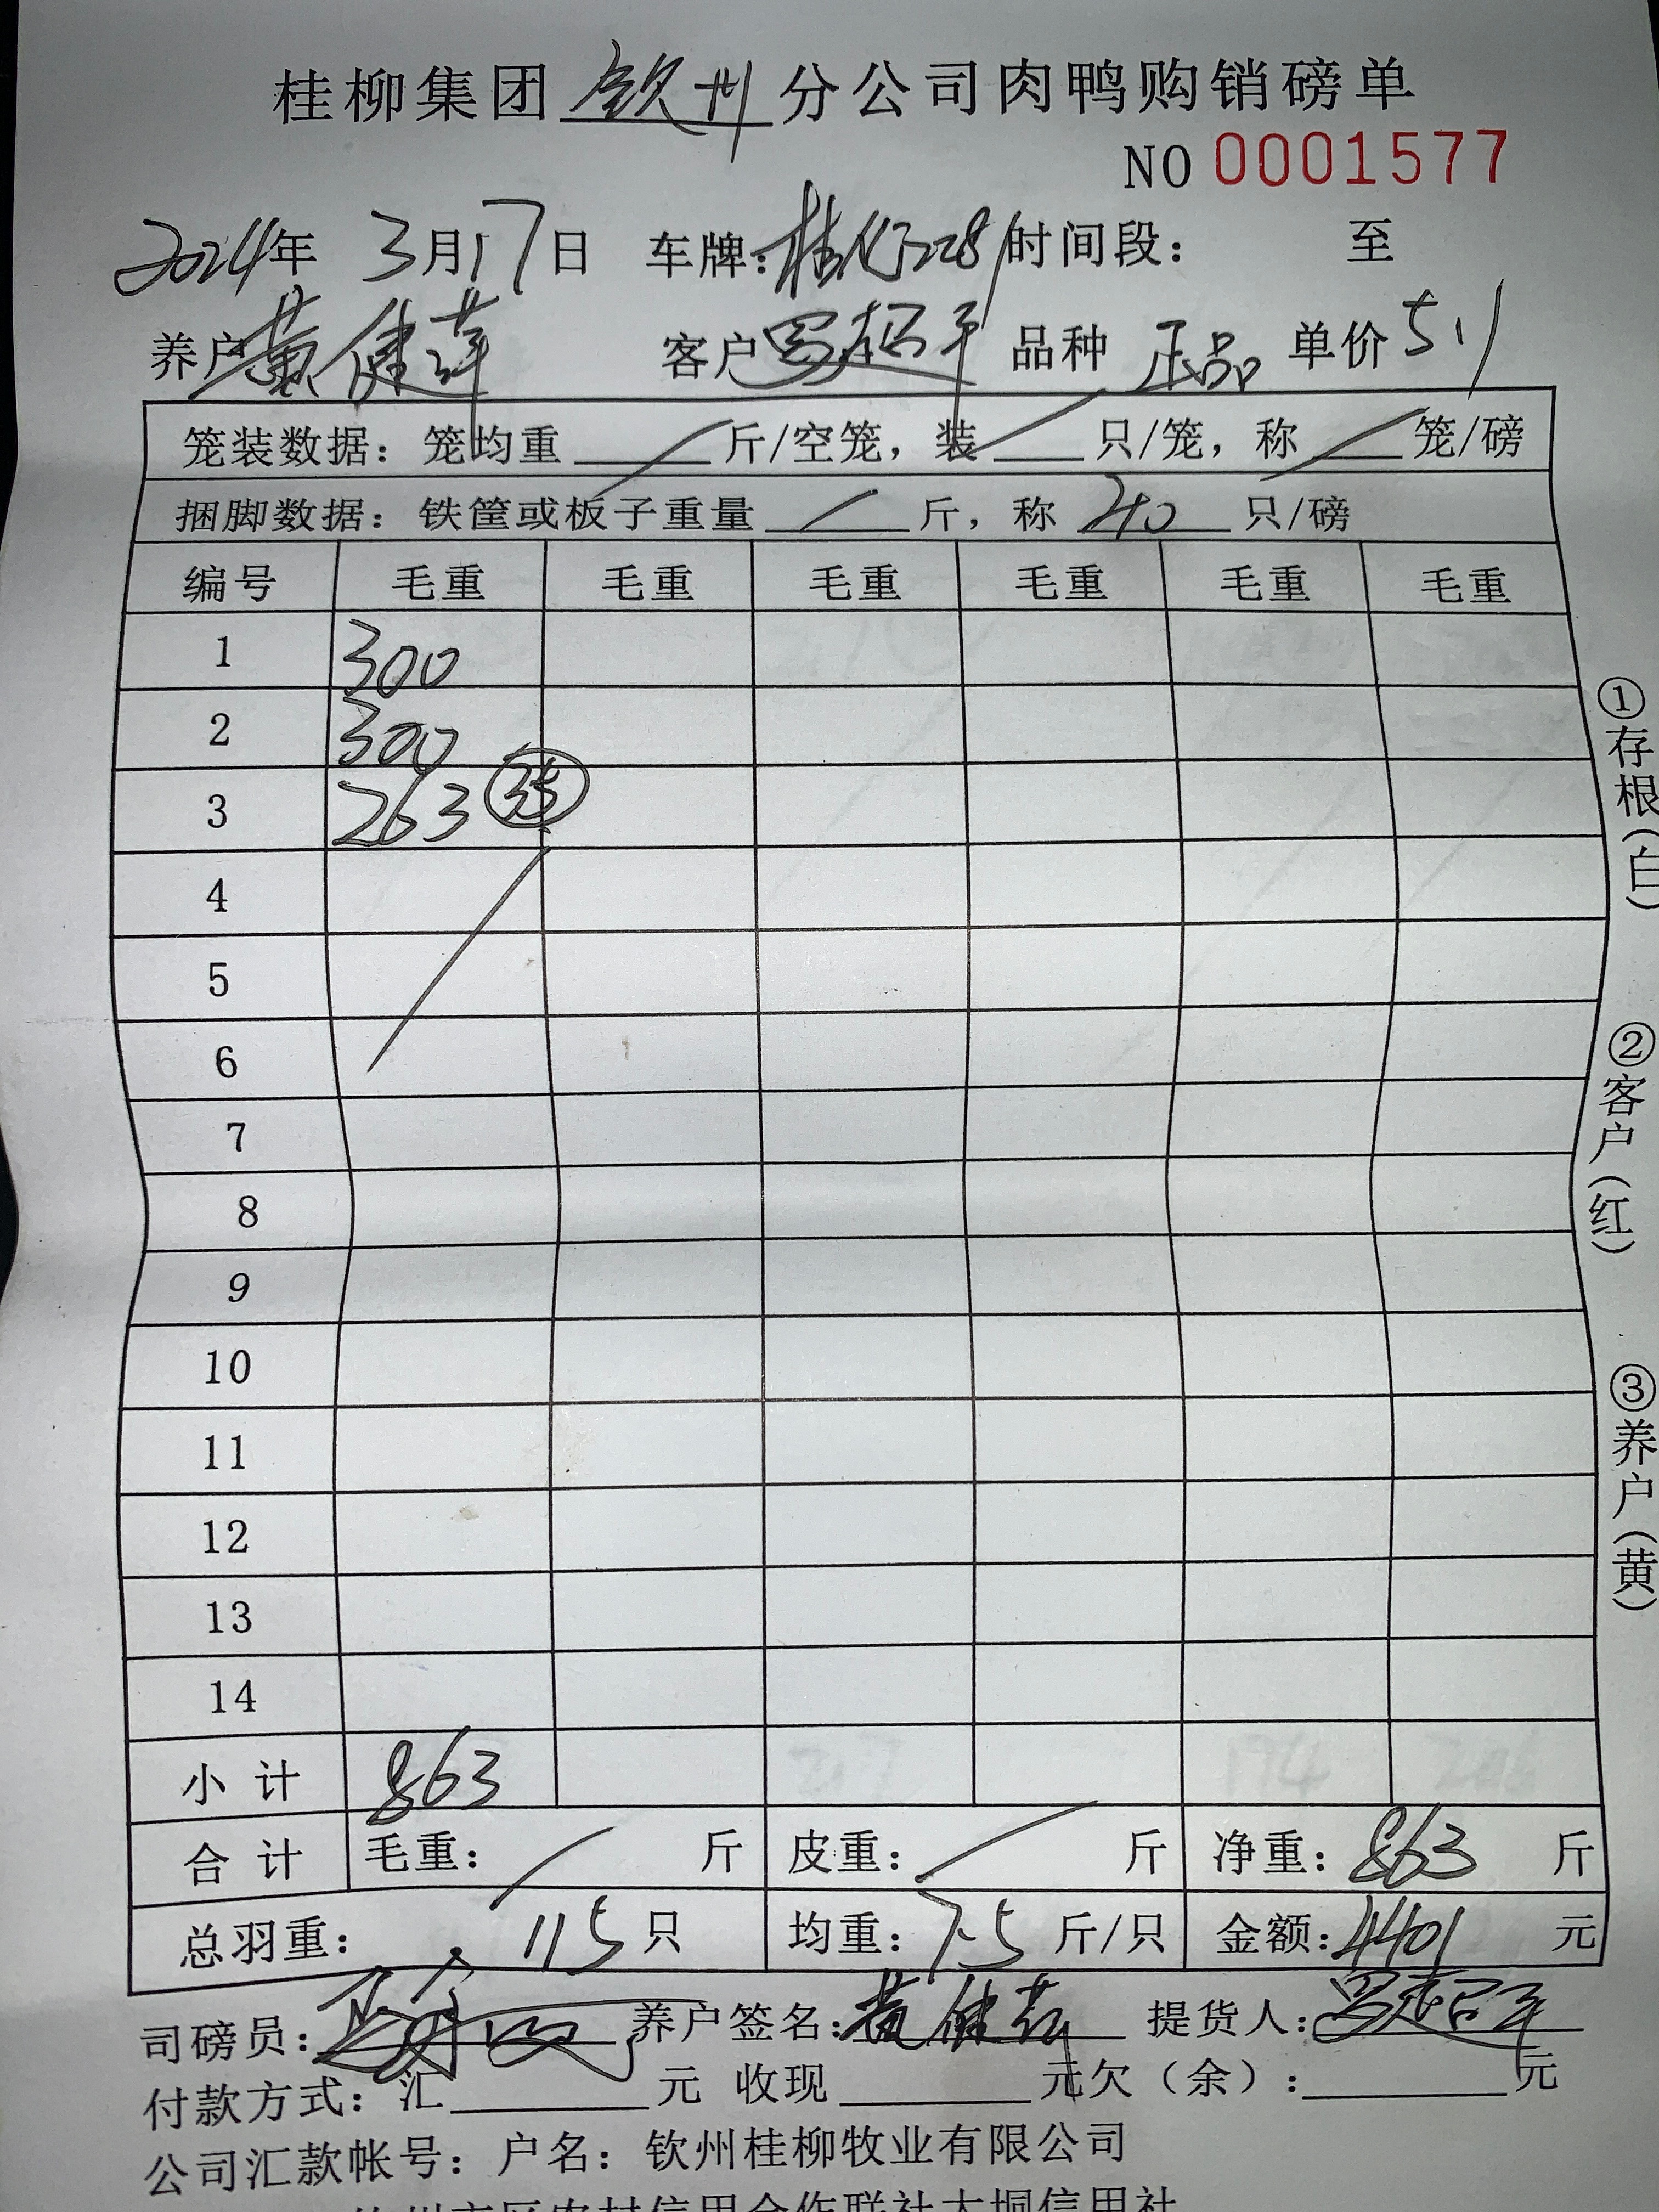 桂柳集团钦州分公司肉鸭购销磅单
NO 0001577
2024年 3月17日 车牌: 时间段: 至
养户黄健萍 客户罗超平 品种 正品 单价5.1
笼装数据: 笼均重 / 斤/空笼, 装 / 只/笼, 称 / 笼/磅
捆脚数据: 铁筐或板子重量 / 斤, 称 40 只/磅
编号 毛重 毛重 毛重 毛重 毛重 毛重
1 300
2 300
3 263 35
4
5
6
7
8
9
10
11
12
13
14
小计 863
合计 毛重: / 斤 皮重: / 斤 净重: 863 斤
总羽重: 115 只 均重: 7.5 斤/只 金额: 4401 元
司磅员: 养户签名: 黄健萍 提货人: 罗超平
付款方式: 汇 元 收现 元欠(余): 元
公司汇款帐号: 户名: 钦州桂柳牧业有限公司
①存根(白)
②客户(红)
③养户(黄)